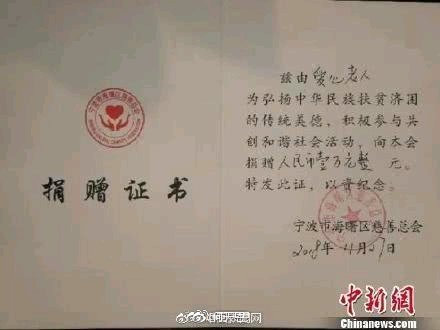 捐赠证书
兹由爱心老人
为弘扬中华民族扶贫济困
的传统美德，积极参与共
创和谐社会活动，向本会
捐赠人民币壹万元整 元。
特发此证，以资纪念。
宁波市海曙区慈善总会
2018年4月27日
中新网
Chinanews.com